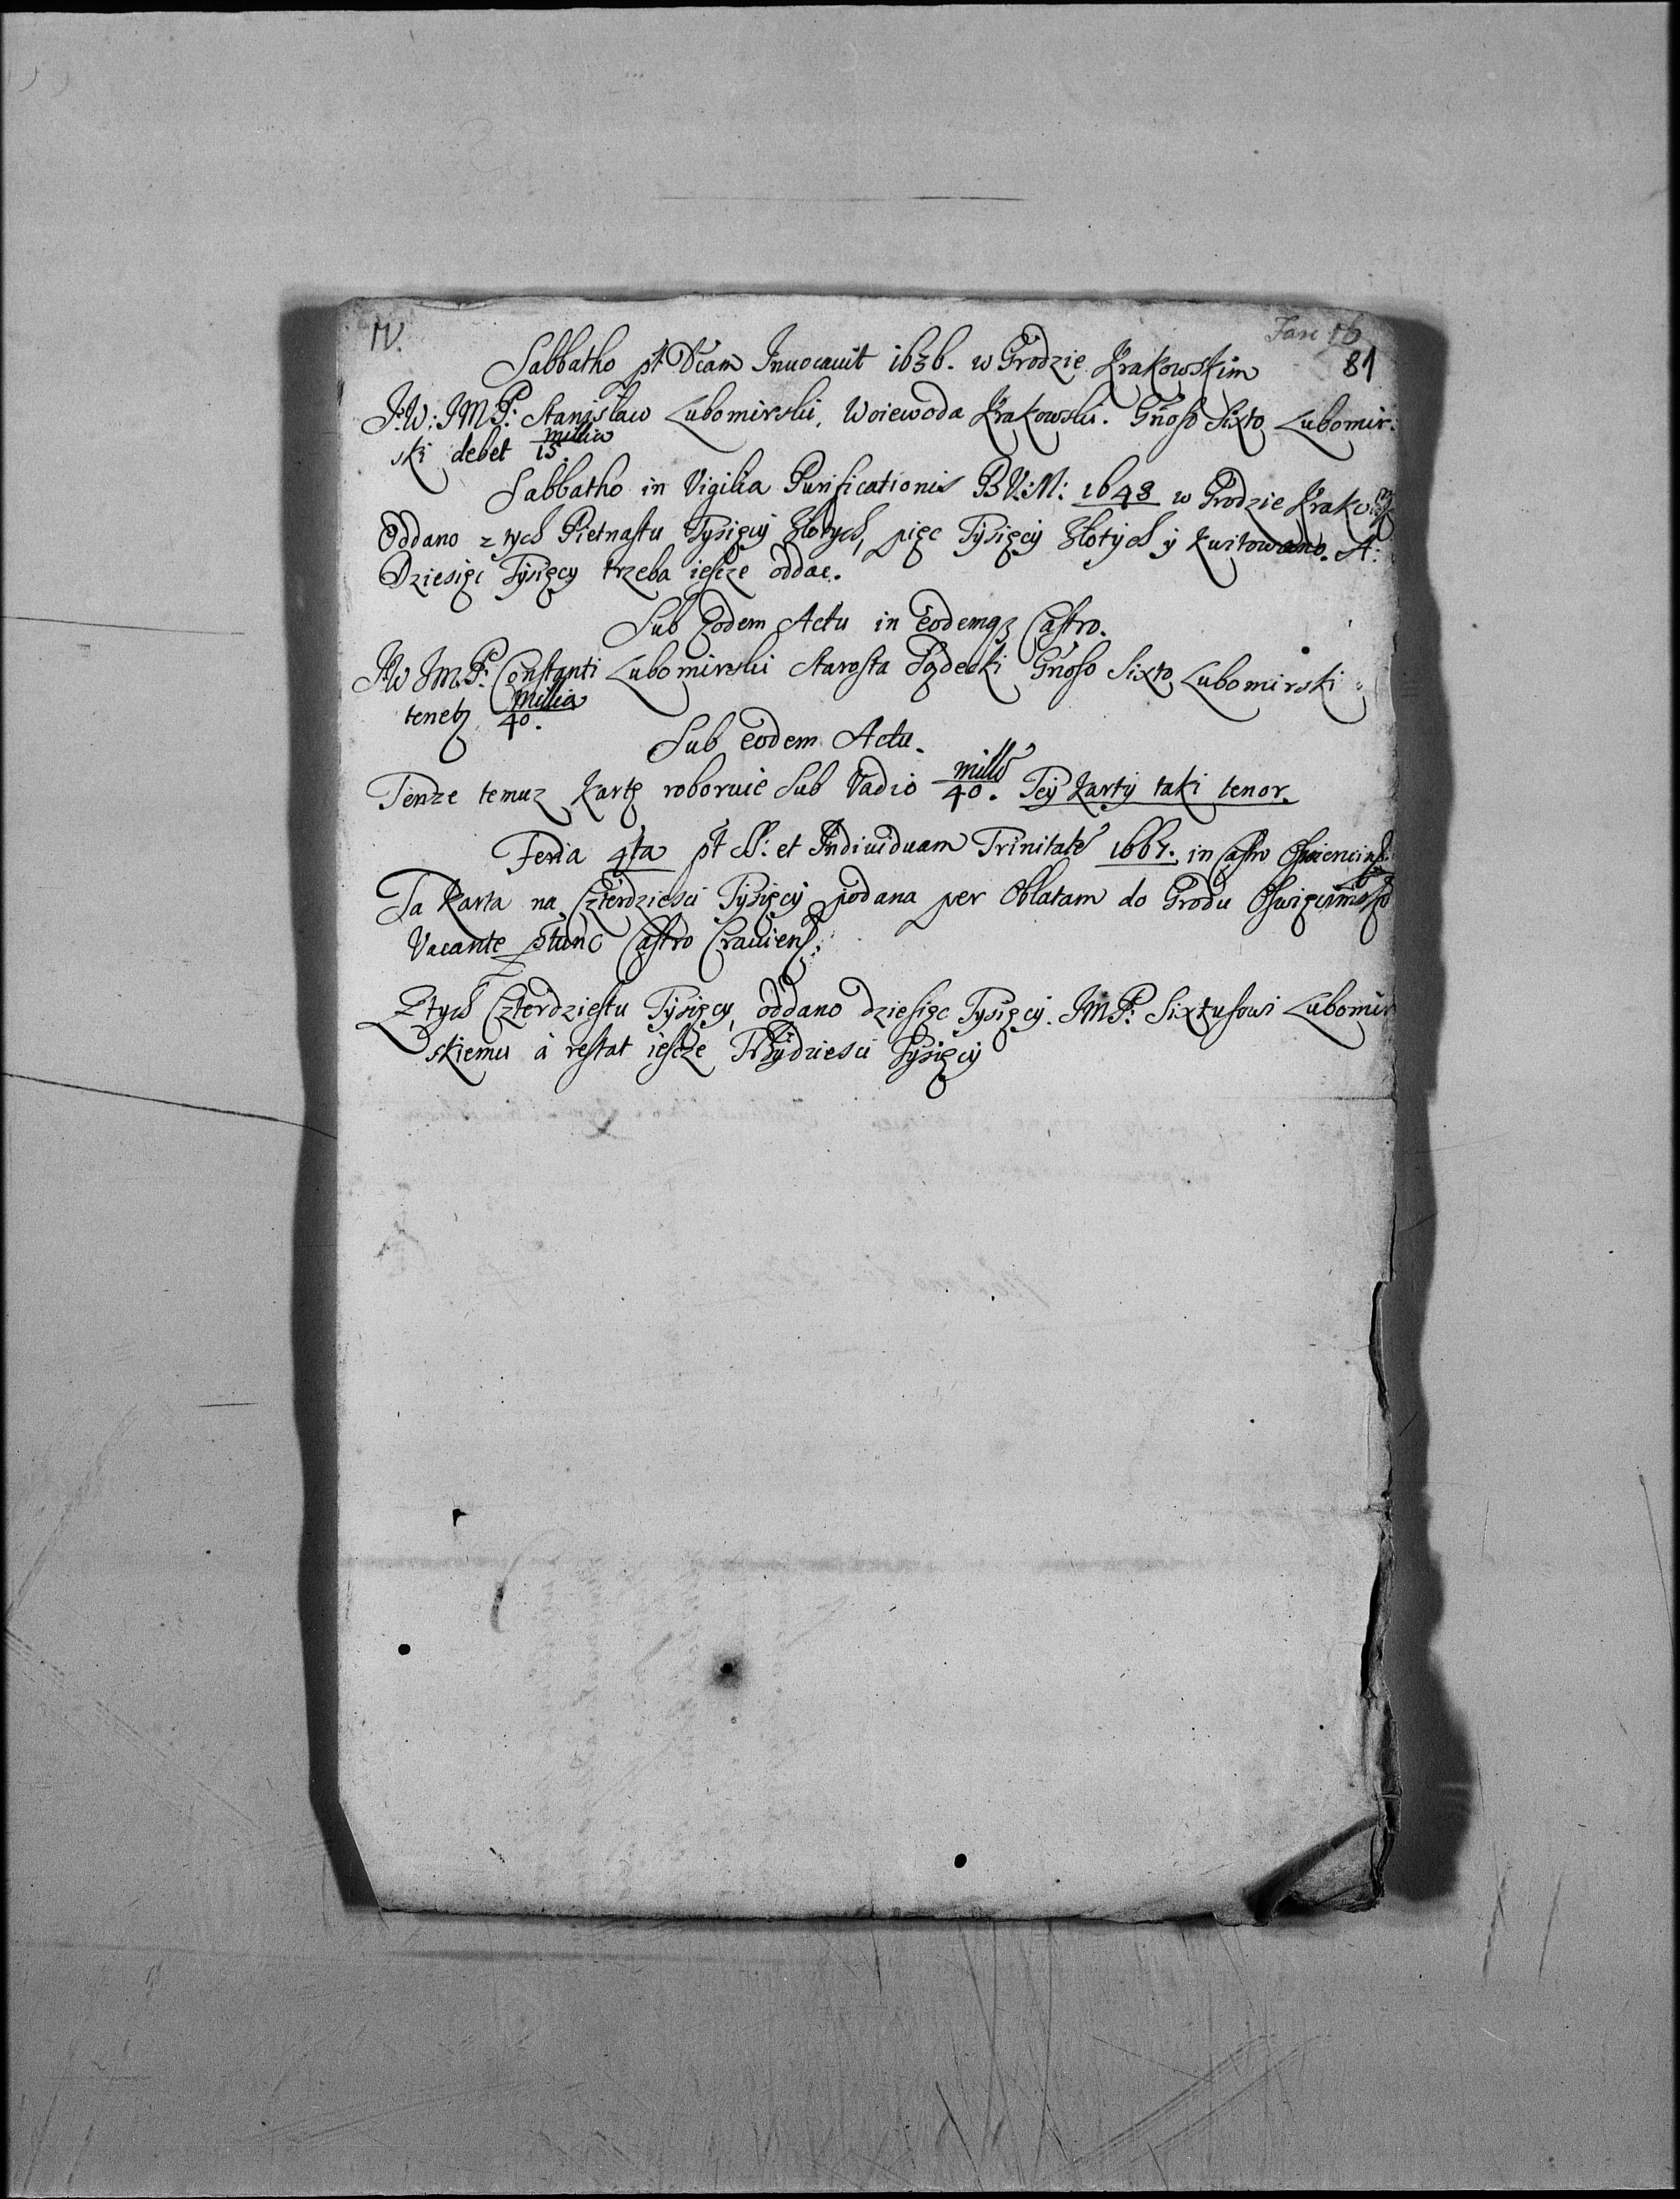 IV.
81
Sabbatho pt Dcam Inuocauit 1636. w Grodzie Krakowskim
J:W: JMP: Stanisław Lubomirski, Woiewoda Krakowski. Gnoso Sixto Lubomir:
ski debet 15 millia
Sabbatho in Vigilia Purificationis B.V:M: 1648 w Grodzie Krakow:
Oddano z tych Pietnastu Tysięcy Złotych, pięc Tysięcy Złotych y kwitowano. A:
Dziesięc Tysięcy trzeba iescze oddac.
Sub Eodem Actu in Eodemqz Castro.
JW JMP: Constanti Lubomirski Starosta Sądecki Gnoso Sixto Lubomirski
tenetz 40. millia
Sub eodem Actu.
Tenze temuz Kartę roboruie sub Vadio 40. mill. Tey Karty taki tenor.
Feria 4ta pt SS: et Indiuiduam Trinitate 1667. in Castro
Ta Karta na Czterdziesci Tysięcy podana per Oblatam do Grodu
Vacante ptunc Castro Crauiens:
Z tych Czterdziestu Tysięcy, oddano dziesięc Tysięcy. JMP: Sixtusowi Lubomir
skiemu à restat iescze Trzydziesci Tysięcy